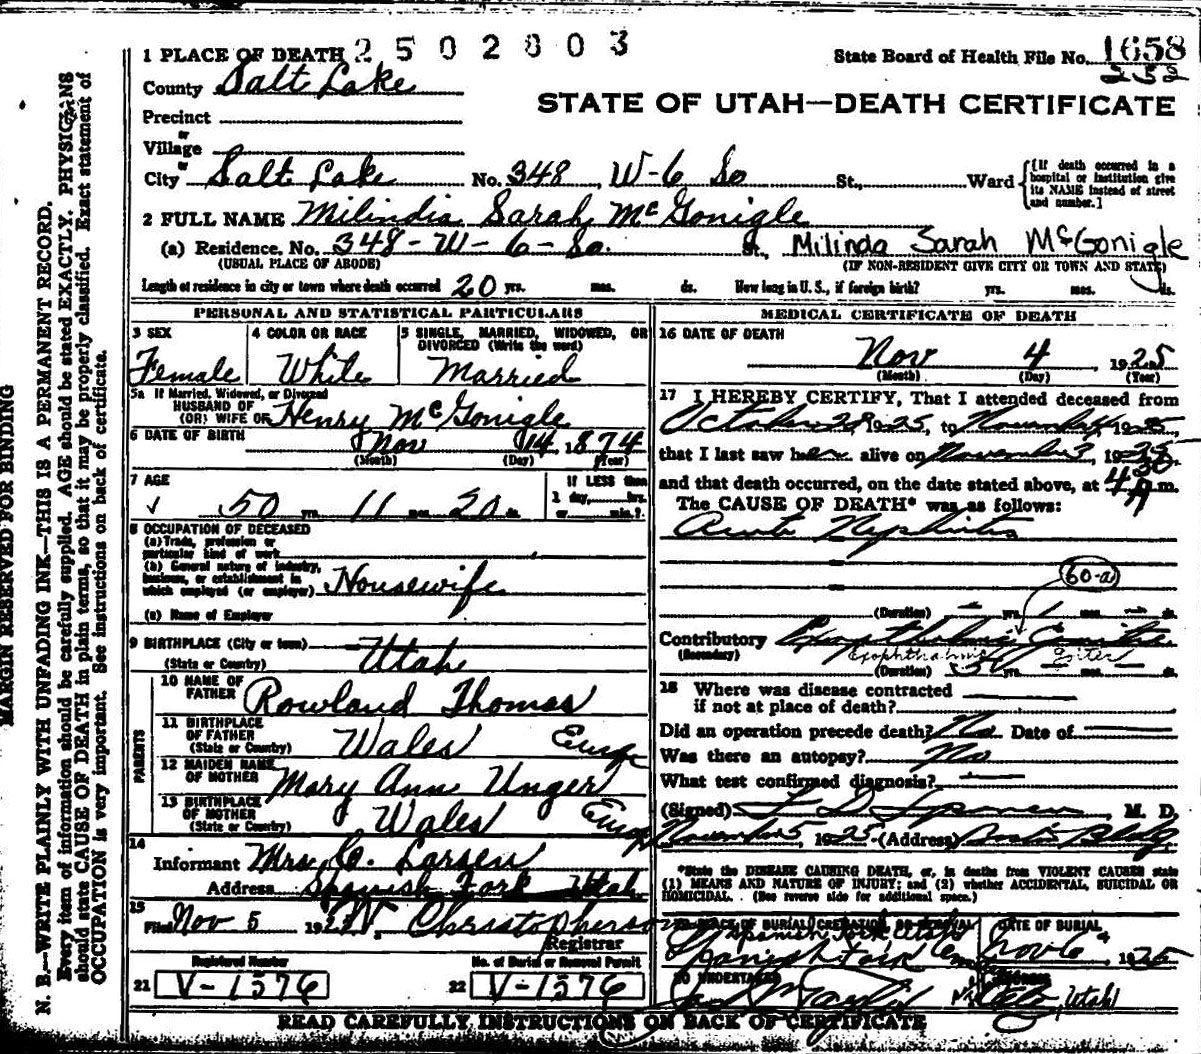 1 PLACE OF DEATH 2502803
State Board of Health File No. 1658
232
County Salt Lake
STATE OF UTAH—DEATH CERTIFICATE
Precinct
or
Village
or
City Salt Lake No. 348 W-6 So St., Ward {[If death occurred in a hospital or institution give its NAME instead of street and number.]
2 FULL NAME Milindia Sarah McGonigle
(a) Residence, No. 348-W-6-So. St., Milinda Sarah McGonigle
(USUAL PLACE OF ABODE) (IF NON-RESIDENT GIVE CITY OR TOWN AND STATE)
Length of residence in city or town where death occurred 20 yrs. mos. ds. How long in U. S., if foreign birth? yrs. mos. ds.
PERSONAL AND STATISTICAL PARTICULARS
3 SEX
Female
4 COLOR OR RACE
White
5 SINGLE, MARRIED, WIDOWED, OR DIVORCED (Write the word)
Married
5a If Married, Widowed, or Divorced
HUSBAND OF
(OR) WIFE OF Henry McGonigle
6 DATE OF BIRTH Nov 14 1874
(Month) (Day) (Year)
7 AGE
50 yrs. 11 mos. 20 ds.
If LESS than
1 day, hrs.
or min.?
8 OCCUPATION OF DECEASED
(a) Trade, profession or
particular kind of work
(b) General nature of industry,
business, or establishment in
which employed (or employer) Housewife
(c) Name of Employer
9 BIRTHPLACE (City or town)
(State or Country) Utah
PARENTS
10 NAME OF
FATHER Rowland Thomas
11 BIRTHPLACE
OF FATHER
(State or Country) Wales Europe
12 MAIDEN NAME
OF MOTHER Mary Ann Unger
13 BIRTHPLACE
OF MOTHER
(State or Country) Wales Europe
14
Informant Mrs. O. Larsen
Address Spanish Fork Utah
15
Filed Nov 5 192 Christopherson
Registrar
Registered Number
21 V-1576
No. of Burial or Removal Permit
22 V-1576
MEDICAL CERTIFICATE OF DEATH
16 DATE OF DEATH
Nov 4 1925
(Month) (Day) (Year)
17 I HEREBY CERTIFY, That I attended deceased from
October 1925, to November 1925,
that I last saw her alive on November 3, 1925
and that death occurred, on the date stated above, at 4 30 A m.
The CAUSE OF DEATH* was as follows:
Acute Nephritis
60-a
(Duration) — yrs. 1 mos. — ds.
Contributory Exopthalmic Goiter
(Secondary) Exophthalmic Goiter
(Duration) yrs. mos. ds.
18 Where was disease contracted
if not at place of death?
Did an operation precede death? No Date of
Was there an autopsy? No
What test confirmed diagnosis?
(Signed) M. D.
November 5, 1925 (Address) Bldg.
*State the DISEASE CAUSING DEATH, or, in deaths from VIOLENT CAUSES state
(1) MEANS AND NATURE OF INJURY; and (2) whether ACCIDENTAL, SUICIDAL OR
HOMICIDAL. (See reverse side for additional space.)
PLACE OF BURIAL, CREMATION, OR REMOVAL
Spanish Fork Utah
Spanish Fork Cem
DATE OF BURIAL
Nov 6 1925
20 UNDERTAKER
Utah
READ CAREFULLY INSTRUCTIONS ON BACK OF CERTIFICATE
MARGIN RESERVED FOR BINDING
N. B.—WRITE PLAINLY WITH UNFADING INK—THIS IS A PERMANENT RECORD.
Every item of information should be carefully supplied. AGE should be stated EXACTLY. PHYSICIANS
should state CAUSE OF DEATH in plain terms, so that it may be properly classified. Exact statement of
OCCUPATION is very important. See instructions on back of certificate.